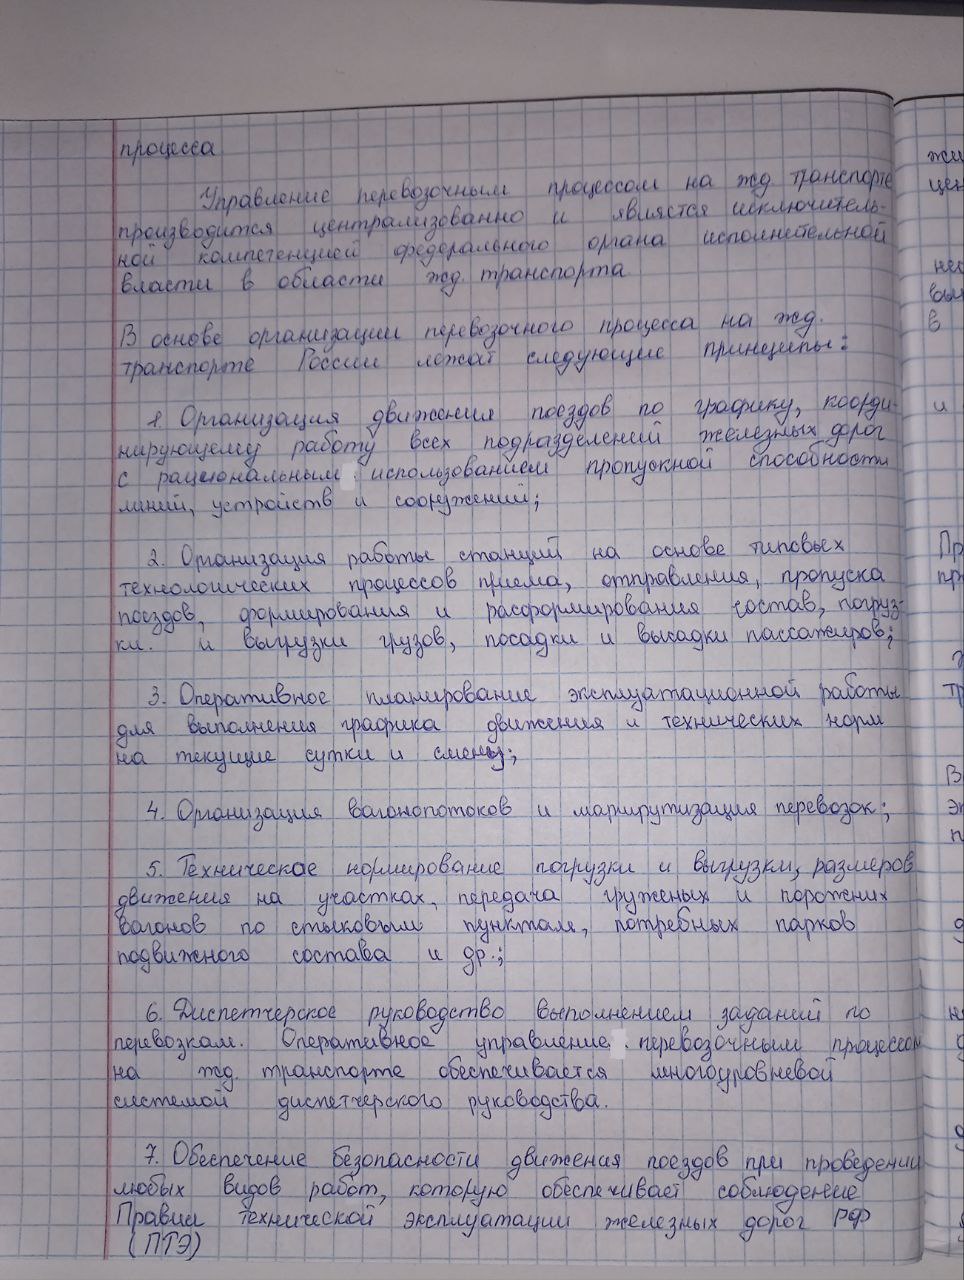 процесса
Управление перевозочным процессом на жд транспорте
производится централизованно и является исключитель-
ной компетенцией федерального органа исполнительной
власти в области жд. транспорта
В основе организации перевозочного процесса на жд.
транспорте России лежат следующие принципы:
1. Организация движения поездов по графику, коорди-
нирующему работу всех подразделений железных дорог
с рациональным использованием пропускной способности
линий, устройств и сооружений;
2. Организация работы станций на основе типовых
технологических процессов приема, отправления, пропуска
поездов, формирования и расформирования состав, погруз-
ки. и выгрузки грузов, посадки и высадки пассажиров;
3. Оперативное планирование эксплуатационной работы
для выполнения графика движения и технических норм
на текущие сутки и смены;
4. Организация вагонопотоков и маршрутизация перевозок;
5. Техническое нормирование погрузки и выгрузки, размеров
движения на участках, передача груженых и порожних
вагонов по стыковым пунктам, потребных парков
подвижного состава и др.;
6. Диспетчерское руководство выполнением заданий по
перевозкам. Оперативное управление перевозочным процессом
на жд. транспорте обеспечивается многоуровневой
системой диспетчерского руководства.
7. Обеспечение безопасности движения поездов при проведении
любых видов работ, которую обеспечивает соблюдение
Правил технической эксплуатации железных дорог РФ
(ПТЭ)